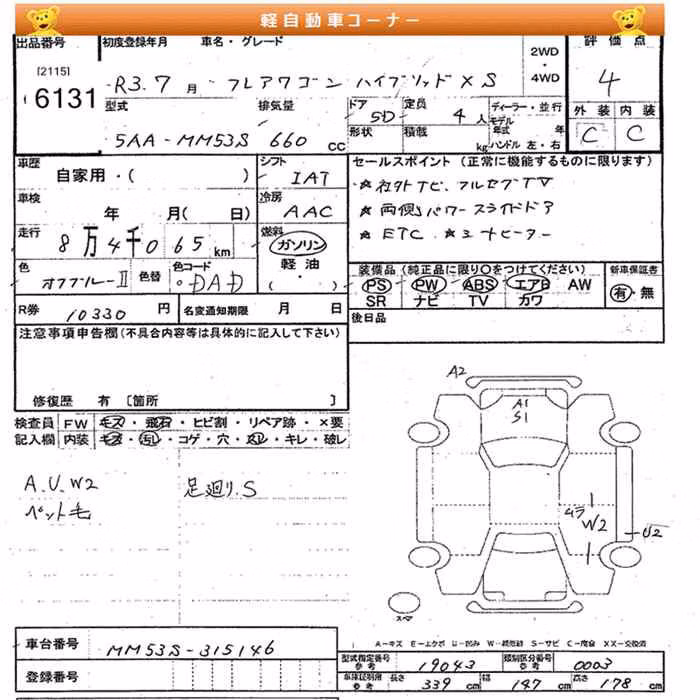 軽自動車コーナー
出品番号 初度登録年月 車名・グレード 2WD・4WD 評価点
[2115]
6131
R3.7月 フレアワゴン ハイブリッドXS 4
型式 排気量 ドア 5D 定員 4人 ディーラー・並行 外装 内装
5AA-MM53S 660cc 形状 積載 kg モデル年式 年 ハンドル 左・右 C C
車歴 自家用・( ) シフト IAT セールスポイント (正常に機能するものに限ります)
★社外ナビ、フルセグTV
車検 年 月( 日) 冷房 AAC
★両側パワースライドドア
走行 8万4千065km 燃料 ガソリン 軽油 ( ・ )
★ETC ★シートヒーター
色 オフブルーII 色替 色コード DAD
装備品 (純正品に限り○をつけてください) 新車保証書
PS PW ABS エアB AW 有・無
SR ナビ TV カワ
R券 10330円 名変通知期限 月 日 後日品
注意事項申告欄(不具合内容等は具体的に記入して下さい)
修復歴 有 [箇所 ]
検査員 FW キズ・飛石・ヒビ割・リペア跡・×要
記入欄 内装 キズ・汚レ・コゲ・穴・スレ・キレ・破レ
A.U.W2 足廻り.S
ペット毛
A2
A1
S1
ムラ
W2
U2
スペア
A-キズ E-エクボ U-凹み W-補修跡 S-サビ C-腐食 XX-交換済
車台番号 MM53S-315146
型式指定番号 参考 19043 類別区分番号 参考 0003
登録番号
車庫証明用 参考 長さ 339cm 幅 147cm 高さ 178cm